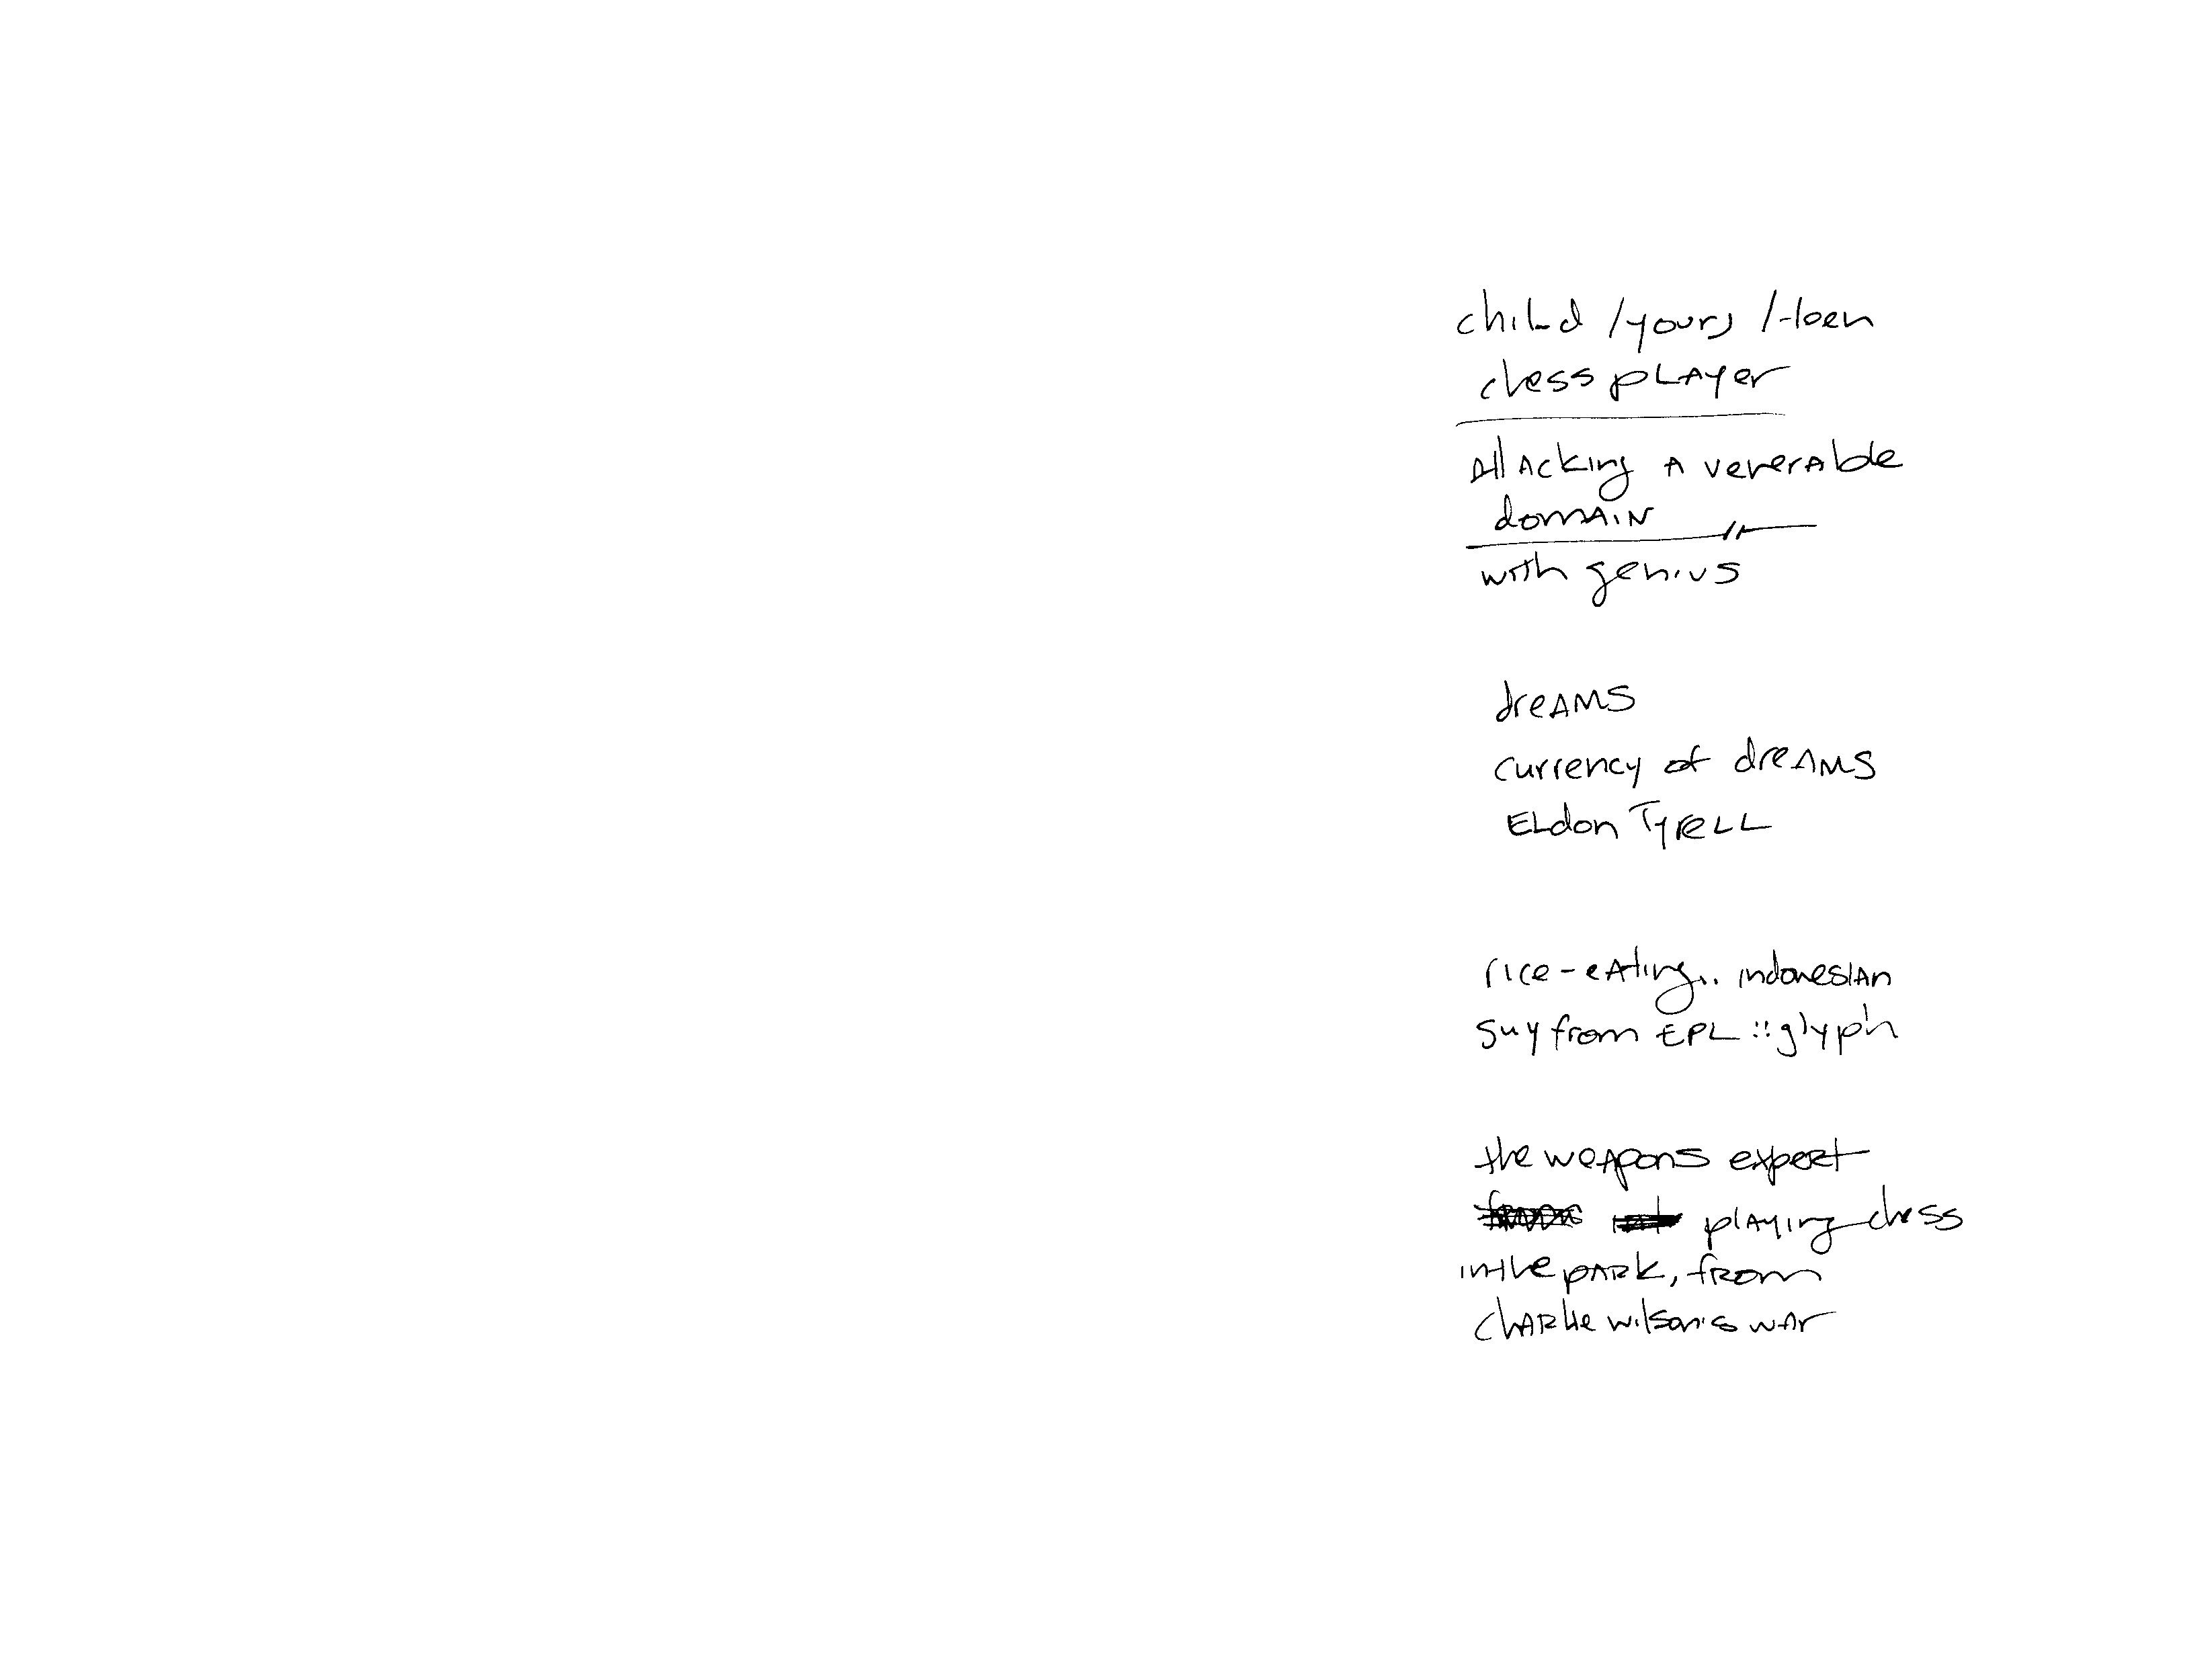 child / yours /
chess player
attacking a venerable
domain
with genius
dreams
currency of dreams
Eldon Tyrell
rice-eating.. indonesian
guy from EPL :: glyph
the weapons expert
playing chess
in the park, from
charlie wilson's war